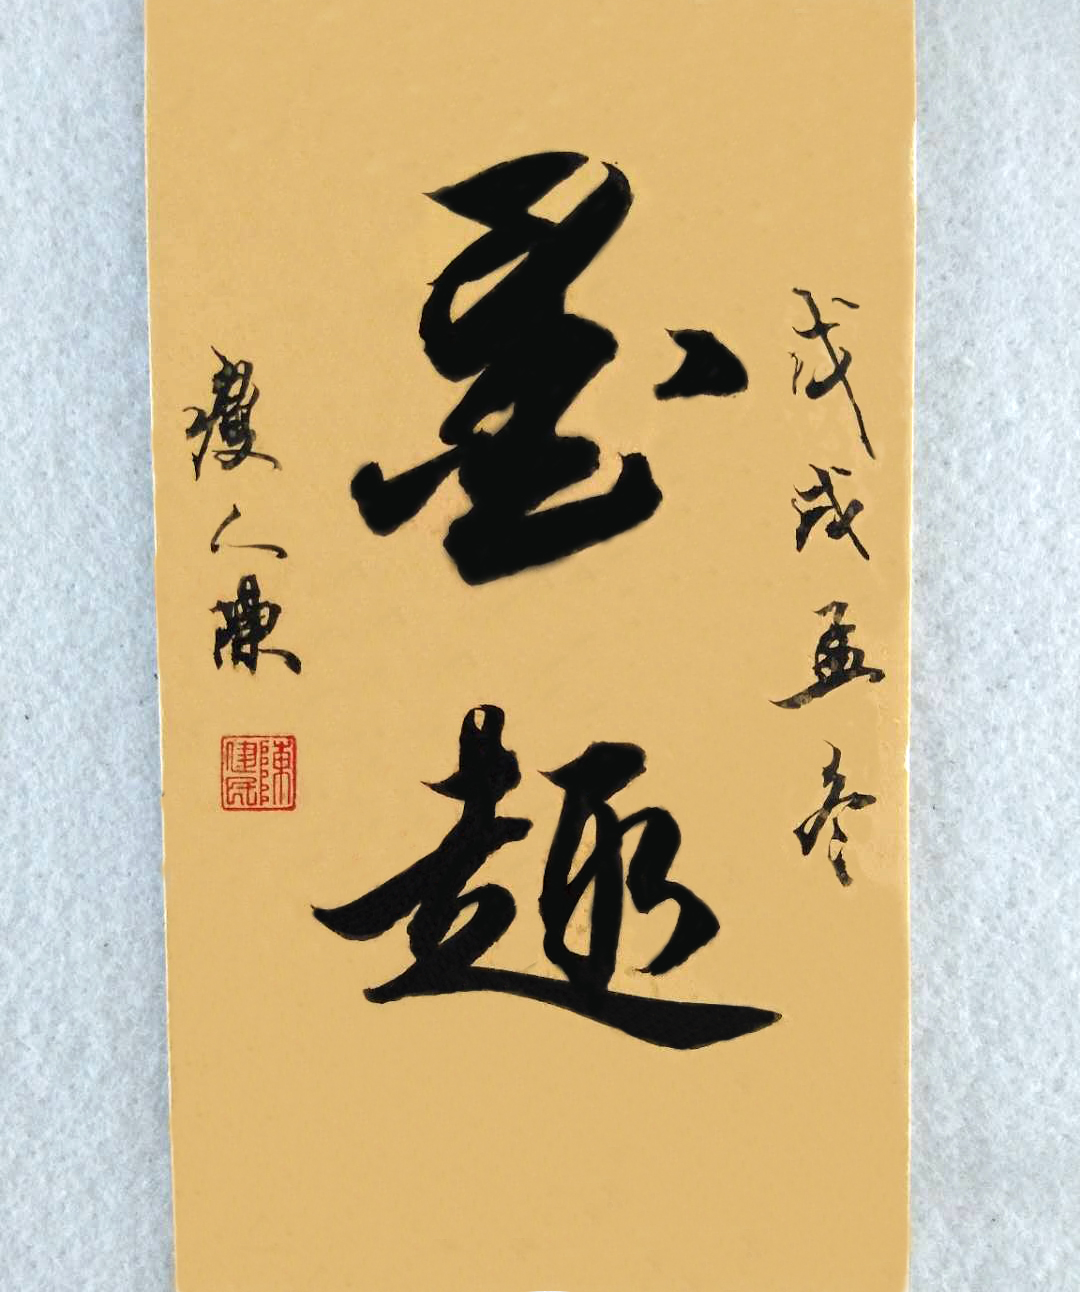 戊戌孟冬
墨趣
瘦人陳
陳建民